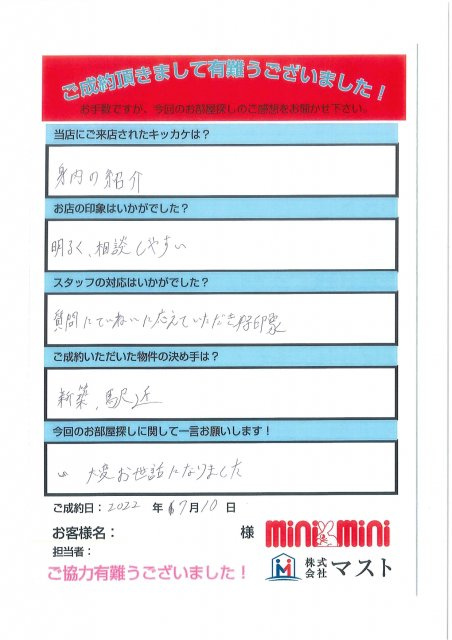 ご成約頂きまして有難うございました！
お手数ですが、今回のお部屋探しのご感想をお聞かせ下さい。
当店にご来店されたキッカケは？
身内の紹介
お店の印象はいかがでした？
明るく、相談しやすい
スタッフの対応はいかがでした？
質問にていねいに応えていただき好印象
ご成約いただいた物件の決め手は？
新築、駅近
今回のお部屋探しに関して一言お願いします！
大変お世話になりました
ご成約日：2022 年 7月10 日
お客様名： 様
担当者：
ご協力有難うございました！
mini mini
株式会社マスト